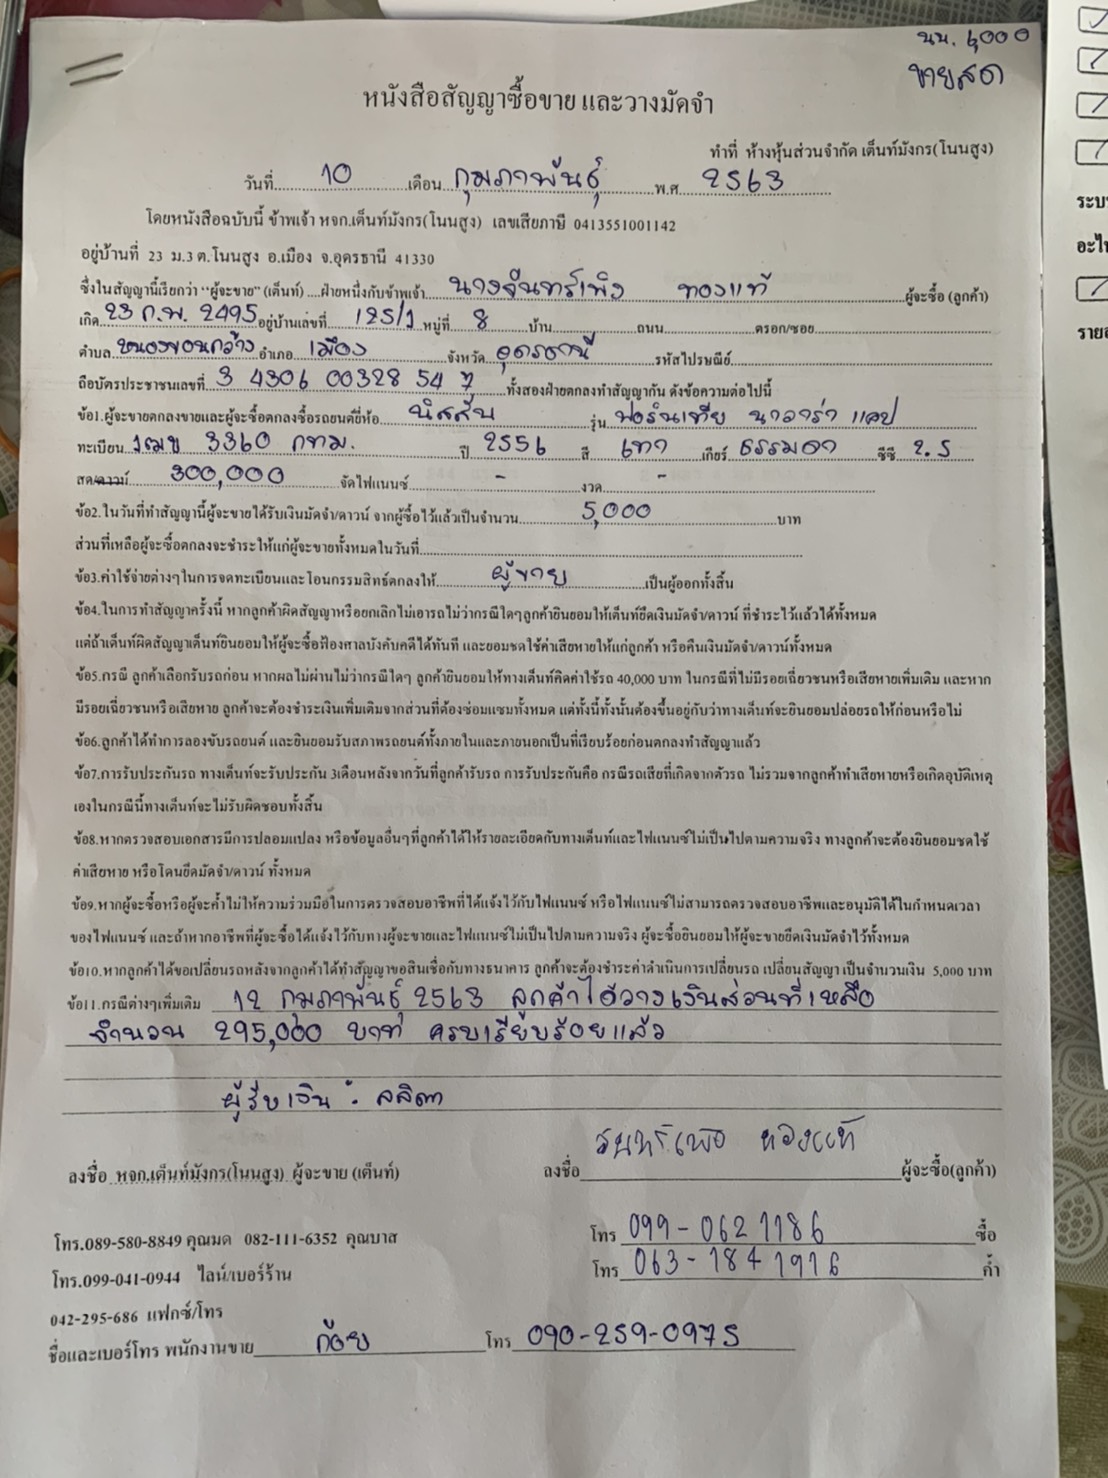 นน. 6,000
ขายสด
หนังสือสัญญาซื้อขาย และวางมัดจำ
ทำที่ ห้างหุ้นส่วนจำกัด เต็นท์มังกร(โนนสูง)
วันที่ 10 เดือน กุมภาพันธุ์ พ.ศ 2563
โดยหนังสือฉบับนี้ ข้าพเจ้า หจก.เต็นท์มังกร(โนนสูง) เลขเสียภาษี 0413551001142
อยู่บ้านที่ 23 ม.3 ต.โนนสูง อ.เมือง จ.อุดรธานี 41330
ซึ่งในสัญญานี้เรียกว่า "ผู้จะขาย" (เต็นท์) ....ฝ่ายหนึ่งกับข้าพเจ้า นางจันทร์เพ็ง ทองแท้ ผู้จะซื้อ (ลูกค้า)
เกิด 23 ก.พ. 2495 อยู่บ้านเลขที่ 125/1 หมู่ที่ 8 บ้าน ถนน ตรอก/ซอย
ตำบล หนองขอนกว้าง อำเภอ เมือง จังหวัด อุดรธานี รหัสไปรษณีย์
ถือบัตรประชาชนเลขที่ 3 4306 00328 54 7 ทั้งสองฝ่ายตกลงทำสัญญากัน ดังข้อความต่อไปนี้
ข้อ1.ผู้จะขายตกลงขายและผู้จะซื้อตกลงซื้อรถยนต์ยี่ห้อ นิสสัน รุ่น ฟอร์นเทีย นาวาร่า แคป
ทะเบียน 3360 กทม. ปี 2556 สี เทา เกียร์ ธรรมดา ซีซี 2.5
สด/ดาวน์ 300,000 จัดไฟแนนซ์ - งวด -
ข้อ2.ในวันที่ทำสัญญานี้ผู้จะขายได้รับเงินมัดจำ/ดาวน์ จากผู้ซื้อไว้แล้วเป็นจำนวน 5,000 บาท
ส่วนที่เหลือผู้จะซื้อตกลงจะชำระให้แก่ผู้จะขายทั้งหมดในวันที่
ข้อ3.ค่าใช้จ่ายต่างๆในการจดทะเบียนและโอนกรรมสิทธ์ตกลงให้ ผู้ขาย เป็นผู้ออกทั้งสิ้น
ข้อ4.ในการทำสัญญาครั้งนี้ หากลูกค้าผิดสัญญาหรือยกเลิกไม่เอารถไม่ว่ากรณีใดๆลูกค้ายินยอมให้เต็นท์ยึดเงินมัดจำ/ดาวน์ ที่ชำระไว้แล้วได้ทั้งหมด
แต่ถ้าเต็นท์ผิดสัญญาเต็นท์ยินยอมให้ผู้จะซื้อฟ้องศาลบังคับคดีได้ทันที และยอมชดใช้ค่าเสียหายให้แก่ลูกค้า หรือคืนเงินมัดจำ/ดาวน์ทั้งหมด
ข้อ5.กรณี ลูกค้าเลือกรับรถก่อน หากผลไม่ผ่านไม่ว่ากรณีใดๆ ลูกค้ายินยอมให้ทางเต็นท์คิดค่าใช้รถ 40,000 บาท ในกรณีที่ไม่มีรอยเฉี่ยวชนหรือเสียหายเพิ่มเติม และหาก
มีรอยเฉี่ยวชนหรือเสียหาย ลูกค้าจะต้องชำระเงินเพิ่มเติมจากส่วนที่ต้องซ่อมแซมทั้งหมด แต่ทั้งนี้ทั้งนั้นต้องขึ้นอยู่กับว่าทางเต็นท์จะยินยอมปล่อยรถให้ก่อนหรือไม่
ข้อ6.ลูกค้าได้ทำการลองขับรถยนต์ และยินยอมรับสภาพรถยนต์ทั้งภายในและภายนอกเป็นที่เรียบร้อยก่อนตกลงทำสัญญาแล้ว
ข้อ7.การรับประกันรถ ทางเต็นท์จะรับประกัน 3เดือนหลังจากวันที่ลูกค้ารับรถ การรับประกันคือ กรณีรถเสียที่เกิดจากตัวรถ ไม่รวมจากลูกค้าทำเสียหายหรือเกิดอุบัติเหตุ
เองในกรณีนี้ทางเต็นท์จะไม่รับผิดชอบทั้งสิ้น
ข้อ8.หากตรวจสอบเอกสารมีการปลอมแปลง หรือข้อมูลอื่นๆที่ลูกค้าได้ให้รายละเอียดกับทางเต็นท์และไฟแนนซ์ไม่เป็นไปตามความจริง ทางลูกค้าจะต้องยินยอมชดใช้
ค่าเสียหาย หรือโดนยึดมัดจำ/ดาวน์ ทั้งหมด
ข้อ9.หากผู้จะซื้อหรือผู้จะค้ำไม่ให้ความร่วมมือในการตรวจสอบอาชีพที่ได้แจ้งไว้กับไฟแนนซ์ หรือไฟแนนซ์ไม่สามารถตรวจสอบอาชีพและอนุมัติได้ในกำหนดเวลา
ของไฟแนนซ์ และถ้าหากอาชีพที่ผู้จะซื้อได้แจ้งไว้กับทางผู้จะขายและไฟแนนซ์ไม่เป็นไปตามความจริง ผู้จะซื้อยินยอมให้ผู้จะขายยึดเงินมัดจำไว้ทั้งหมด
ข้อ10.หากลูกค้าได้ขอเปลี่ยนรถหลังจากลูกค้าได้ทำสัญญาขอสินเชื่อกับทางธนาคาร ลูกค้าจะต้องชำระค่าดำเนินการเปลี่ยนรถ เปลี่ยนสัญญา เป็นจำนวนเงิน 5,000 บาท
ข้อ11.กรณีต่างๆเพิ่มเติม 12 กุมภาพันธุ์ 2563 ลูกค้าได้วางเงินส่วนที่เหลือ
จำนวน 295,000 บาท ครบเรียบร้อยแล้ว
ผู้รับเงิน : ลลิตา
ลงชื่อ หจก.เต็นท์มังกร(โนนสูง) ผู้จะขาย (เต็นท์) ลงชื่อ จันทร์เพ็ง ทองแท้ ผู้จะซื้อ(ลูกค้า)
โทร.089-580-8849 คุณมด 082-111-6352 คุณบาส โทร 099-0621186 ซื้อ
โทร.099-041-0944 ไลน์/เบอร์ร้าน โทร 063-1841916 ค้ำ
042-295-686 แฟกซ์/โทร
ชื่อและเบอร์โทร พนักงานขาย ก้อย โทร 090-259-0975
ระบ
อะไ
ราย